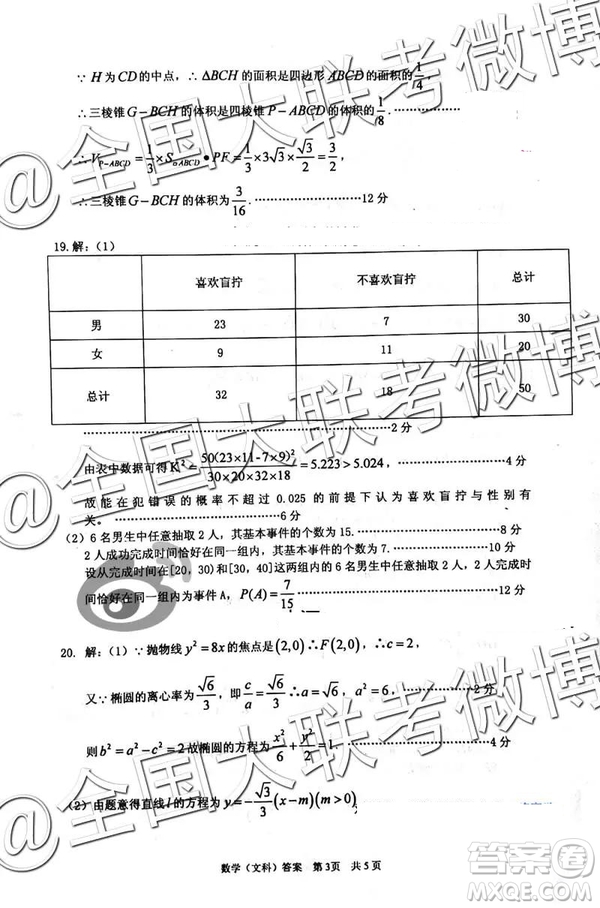 ∵ H为CD的中点，∴ ΔBCH的面积是四边形ABCD的面积的1/4，
∴三棱锥G－BCH的体积是四棱锥P－ABCD的体积的1/8．
∴V_{P-ABCD}=1/3×S_{▱ABCD}•PF=1/3×3√3×√3/2=3/2，
∴三棱锥G－BCH的体积为3/16．…………12分
19.解：（1）
喜欢盲拧 不喜欢盲拧 总计
男 23 7 30
女 9 11 20
总计 32 18 50
…………2分
由表中数据可得K²=50(23×11-7×9)²/(30×20×32×18)=5.223>5.024，…………4分
故能在犯错误的概率不超过0.025的前提下认为喜欢盲拧与性别有
关。…………6分
（2）6名男生中任意抽取2人，其基本事件的个数为15.…………8分
2人成功完成时间恰好在同一组内，其基本事件的个数为7.…………10分
设从完成时间在[20，30)和[30，40]这两组内的6名男生中任意抽取2人，2人完成时
间恰好在同一组内为事件A，P(A)=7/15…………12分
20. 解：（1）∵抛物线y²=8x的焦点是(2,0)∴F(2,0)，∴c=2，
又∵椭圆的离心率为√6/3，即c/a=√6/3∴a=√6，…………2分
则b²=a²－c²=2故椭圆的方程为x²/6+y²/2=1．…………4分
（2）由题意得直线l的方程为y=－√3/3(x－m)(m>0)
数学（文科）答案 第3页 共5页
@全国大联考微博
@全国大联考微博
@全国大联考微博
答案圈
MXQE.COM